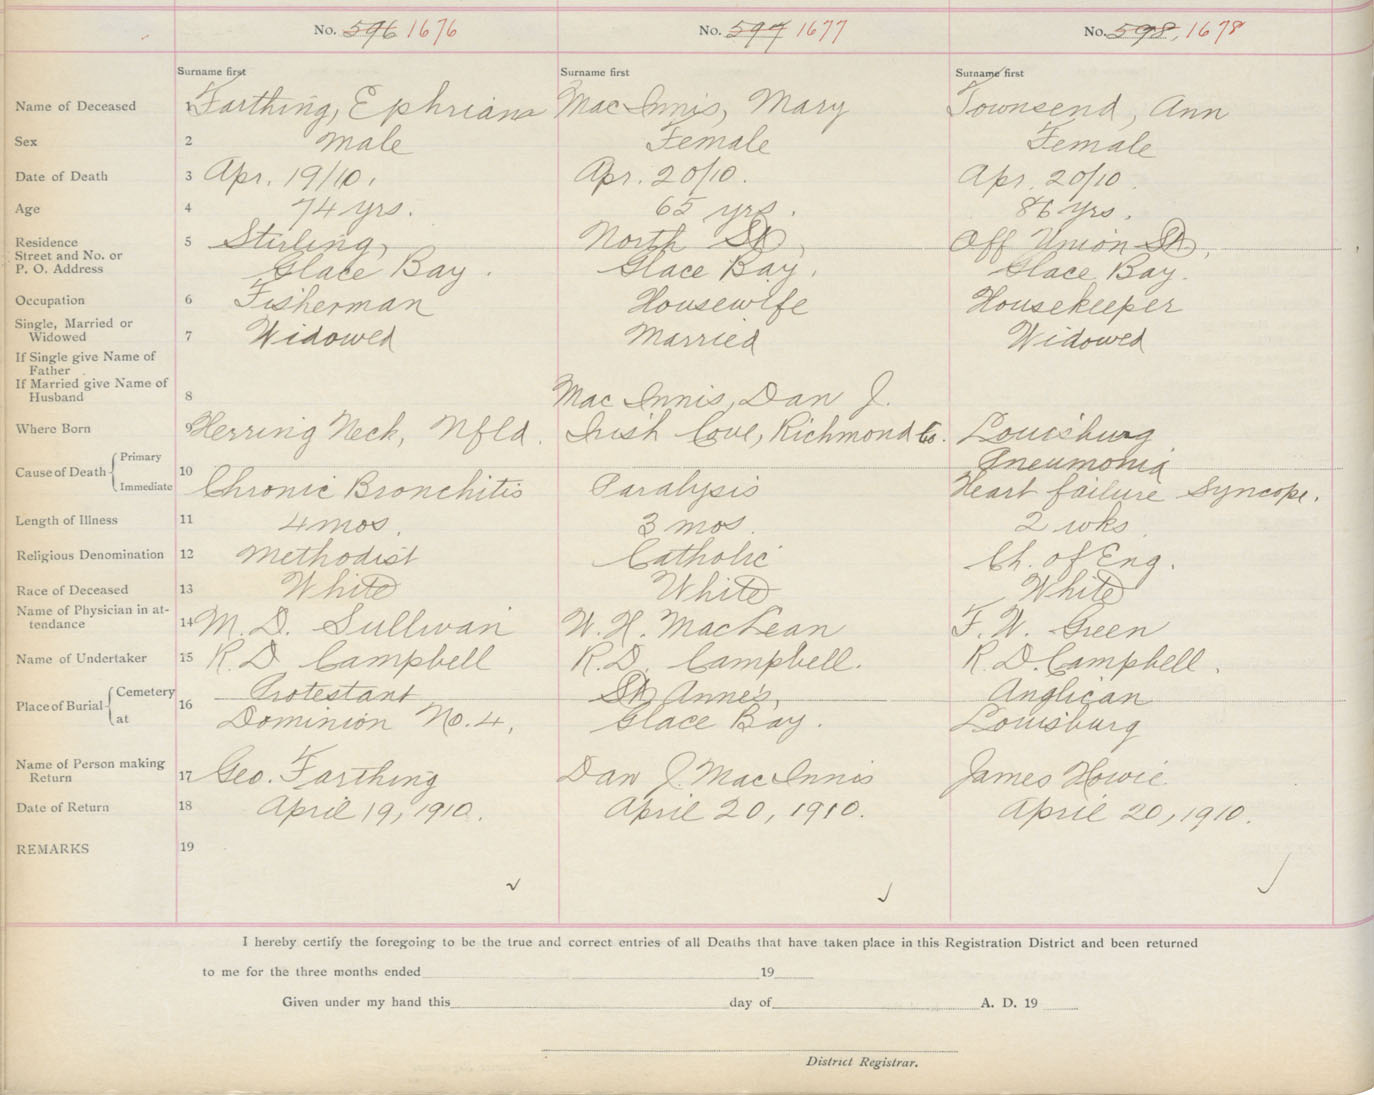 No. 596 1676 No. 597 1677 No. 598, 1678
Surname first Surname first Surname first
Name of Deceased 1 Farthing, Ephriam Mac Innis, Mary Townsend, Ann
Sex 2 Male Female Female
Date of Death 3 Apr. 19/10. Apr. 20/10. Apr. 20/10.
Age 4 74 yrs. 65 yrs. 86 yrs.
Residence 5 Stirling, North St, Off Union St,
Street and No. or
P. O. Address Glace Bay. Glace Bay. Glace Bay.
Occupation 6 Fisherman Housewife Housekeeper
Single, Married or
Widowed 7 Widowed Married Widowed
If Single give Name of
Father
If Married give Name of
Husband 8 Mac Innis, Dan J.
Where Born 9 Herring Neck, Nfld. Irish Cove, Richmond Co. Louisburg
Primary Pneumonia
Cause of Death 10
Immediate Chronic Bronchitis Paralysis Heart failure Syncope.
Length of Illness 11 4 mos. 3 mos. 2 wks
Religious Denomination 12 Methodist Catholic Ch. of Eng.
Race of Deceased 13 White White White
Name of Physician in at-
tendance 14 M. D. Sullivan W. H. MacLean F. W. Green
Name of Undertaker 15 R. D Campbell R. D. Campbell. R. D. Campbell.
Cemetery Protestant St Anne's, Anglican
Place of Burial 16
at Dominion No. 4, Glace Bay. Louisburg
Name of Person making
Return 17 Geo. Farthing Dan J. MacInnis James Howie
Date of Return 18 April 19, 1910. April 20, 1910. April 20, 1910.
REMARKS 19
I hereby certify the foregoing to be the true and correct entries of all Deaths that have taken place in this Registration District and been returned
to me for the three months ended 19
Given under my hand this day of A. D. 19
District Registrar.